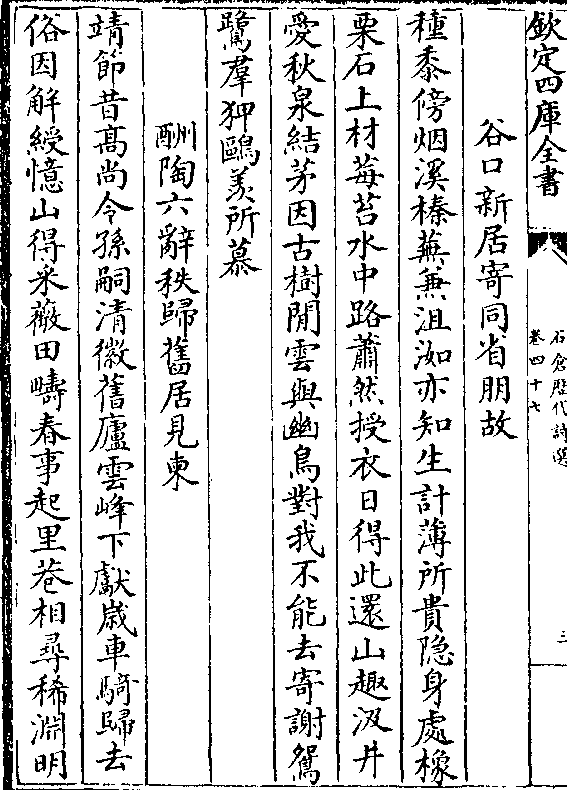 欽定四庫全書
石倉歷代詩選
卷四十七
三
谷口新居寄同省朋故
種黍傍烟溪榛蕪兼沮洳亦知生計薄所貴隱身處橡
栗石上村莓苔水中路蕭然授衣日得此還山趣汲井
愛秋泉結茅因古樹閒雲與幽鳥對我不能去寄謝鴛
鷺羣狎鷗羨所慕
酬陶六辭秩歸舊居見柬
靖節昔高尚令孫嗣清徽舊廬雲峰下獻歲車騎歸去
俗因解綬憶山得采薇田疇春事起里巷相尋稀淵明